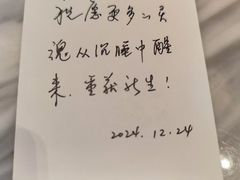 祝愿更多的灵
魂从沉睡中醒
来，重获新生！
2024.12.24